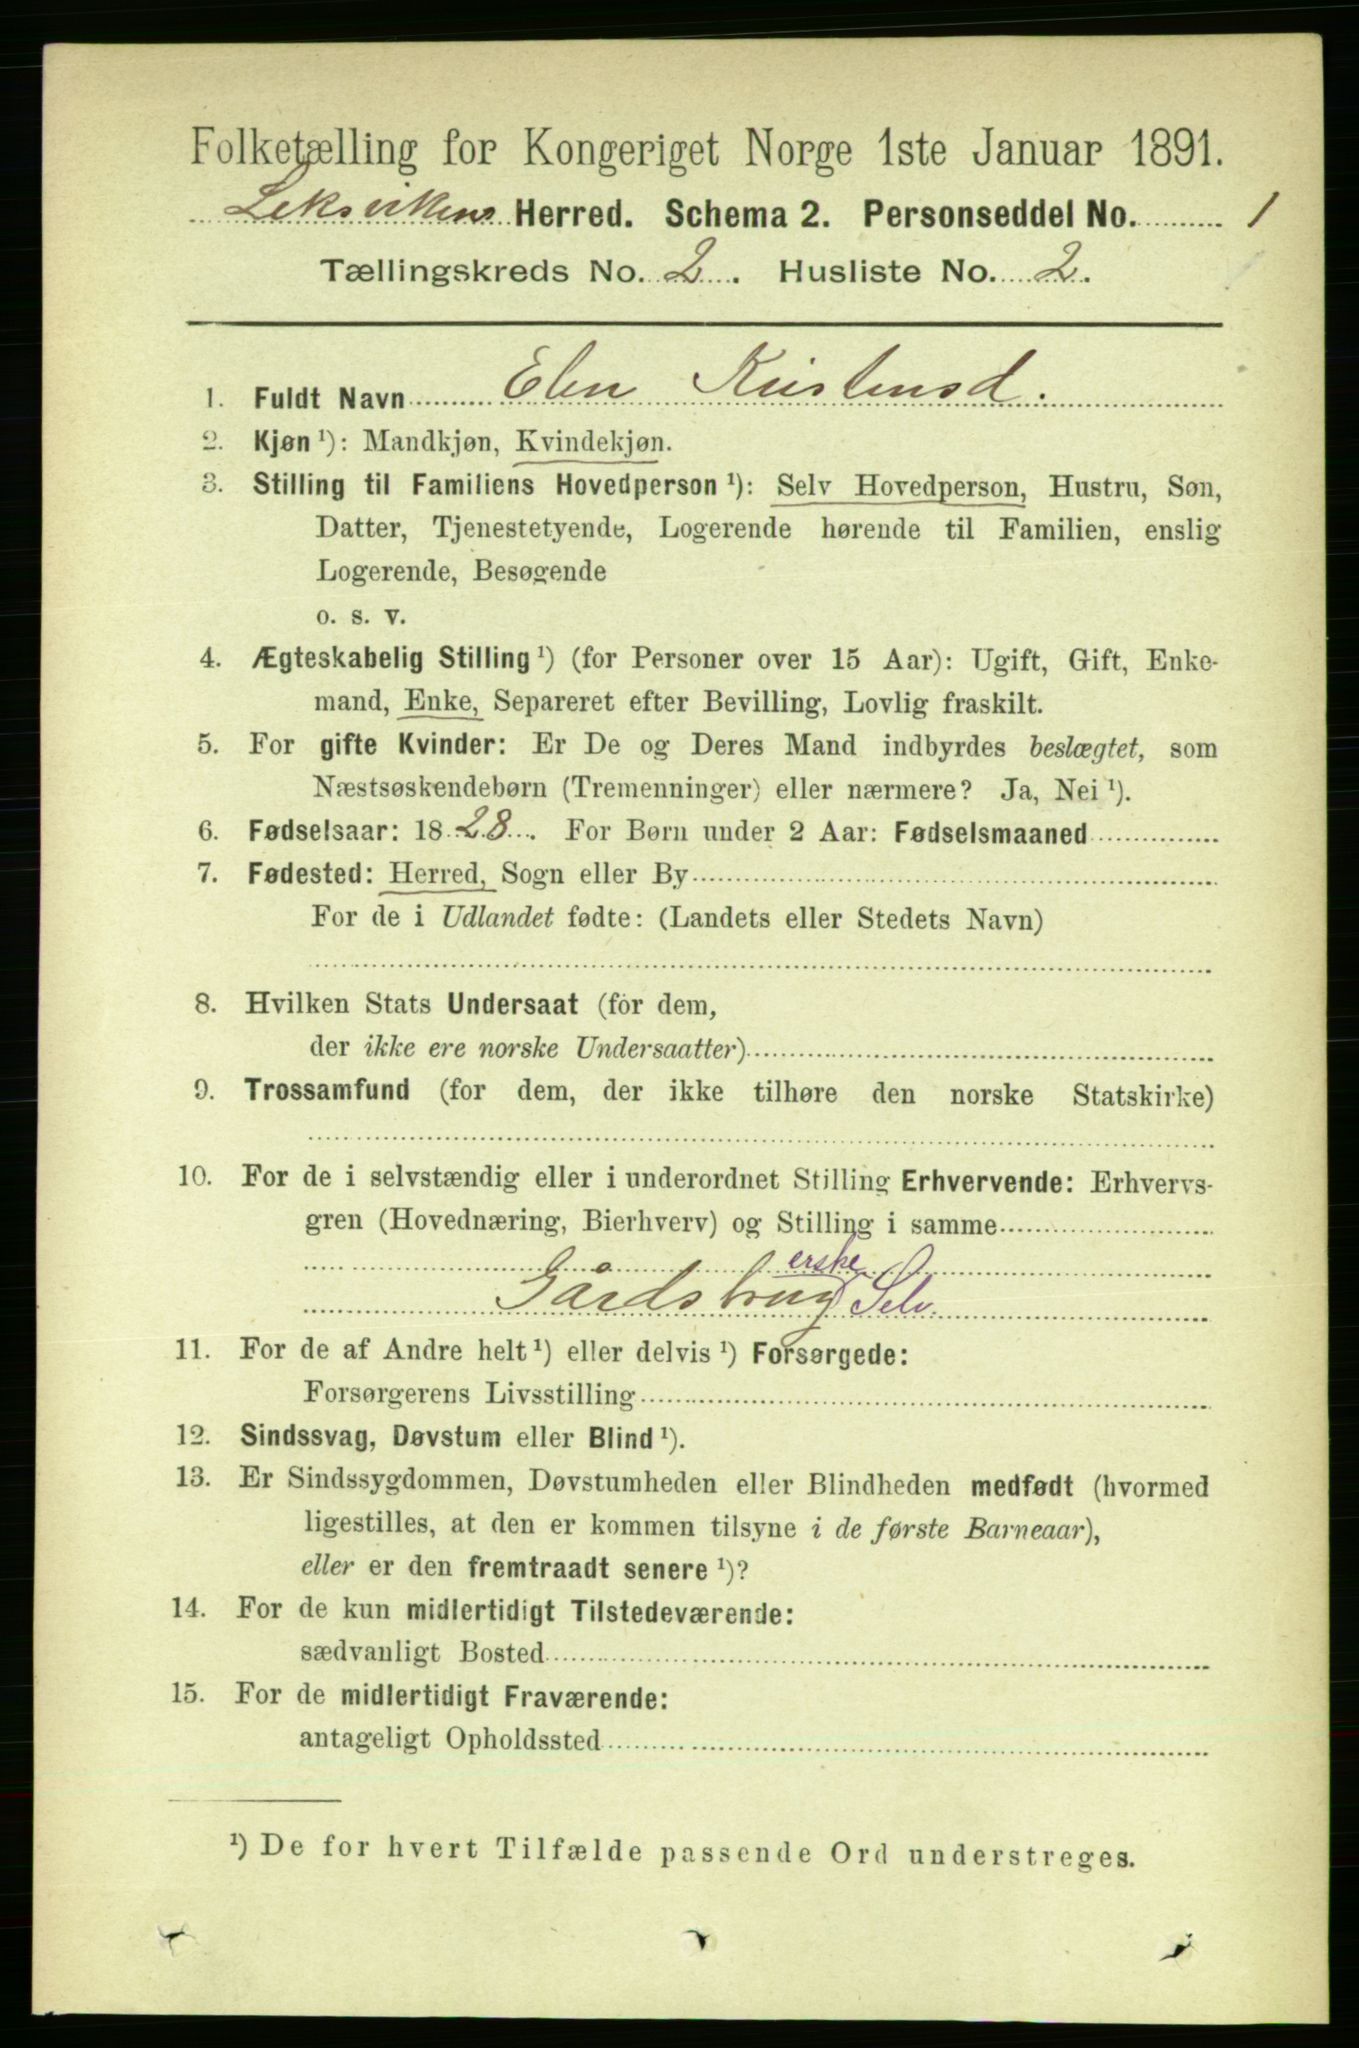 Folketælling for Kongeriget Norge 1ste Januar 1891.
Leksvikens Herred. Schema 2. Personseddel No. 1
Tællingskreds No. 2. Husliste No. 2.
1. Fuldt Navn Elen Kristensd.
2. Kjøn ¹): Mandkjøn, Kvindekjøn.
3. Stilling til Familiens Hovedperson ¹): Selv Hovedperson, Hustru, Søn,
Datter, Tjenestetyende, Logerende hørende til Familien, enslig
Logerende, Besøgende
o. s. v.
4. Ægteskabelig Stilling ¹) (for Personer over 15 Aar): Ugift, Gift, Enke-
mand, Enke, Separeret efter Bevilling, Lovlig fraskilt.
5. For gifte Kvinder: Er De og Deres Mand indbyrdes beslægtet, som
Næstsøskendebørn (Tremenninger) eller nærmere? Ja, Nei ¹).
6. Fødselsaar: 1828. For Børn under 2 Aar: Fødselsmaaned
7. Fødested: Herred, Sogn eller By
For de i Udlandet fødte: (Landets eller Stedets Navn)
8. Hvilken Stats Undersaat (for dem,
der ikke ere norske Undersaatter)
9. Trossamfund (for dem, der ikke tilhøre den norske Statskirke)
10. For de i selvstændig eller i underordnet Stilling Erhvervende: Erhvervs-
gren (Hovednæring, Bierhverv) og Stilling i samme
erske
Gårdsbrug Selv.
11. For de af Andre helt ¹) eller delvis ¹) Forsørgede:
Forsørgerens Livsstilling
12. Sindssvag, Døvstum eller Blind ¹).
13. Er Sindssygdommen, Døvstumheden eller Blindheden medfødt (hvormed
ligestilles, at den er kommen tilsyne i de første Barneaar),
eller er den fremtraadt senere ¹)?
14. For de kun midlertidigt Tilstedeværende:
sædvanligt Bosted
15. For de midlertidigt Fraværende:
antageligt Opholdssted
¹) De for hvert Tilfælde passende Ord understreges.